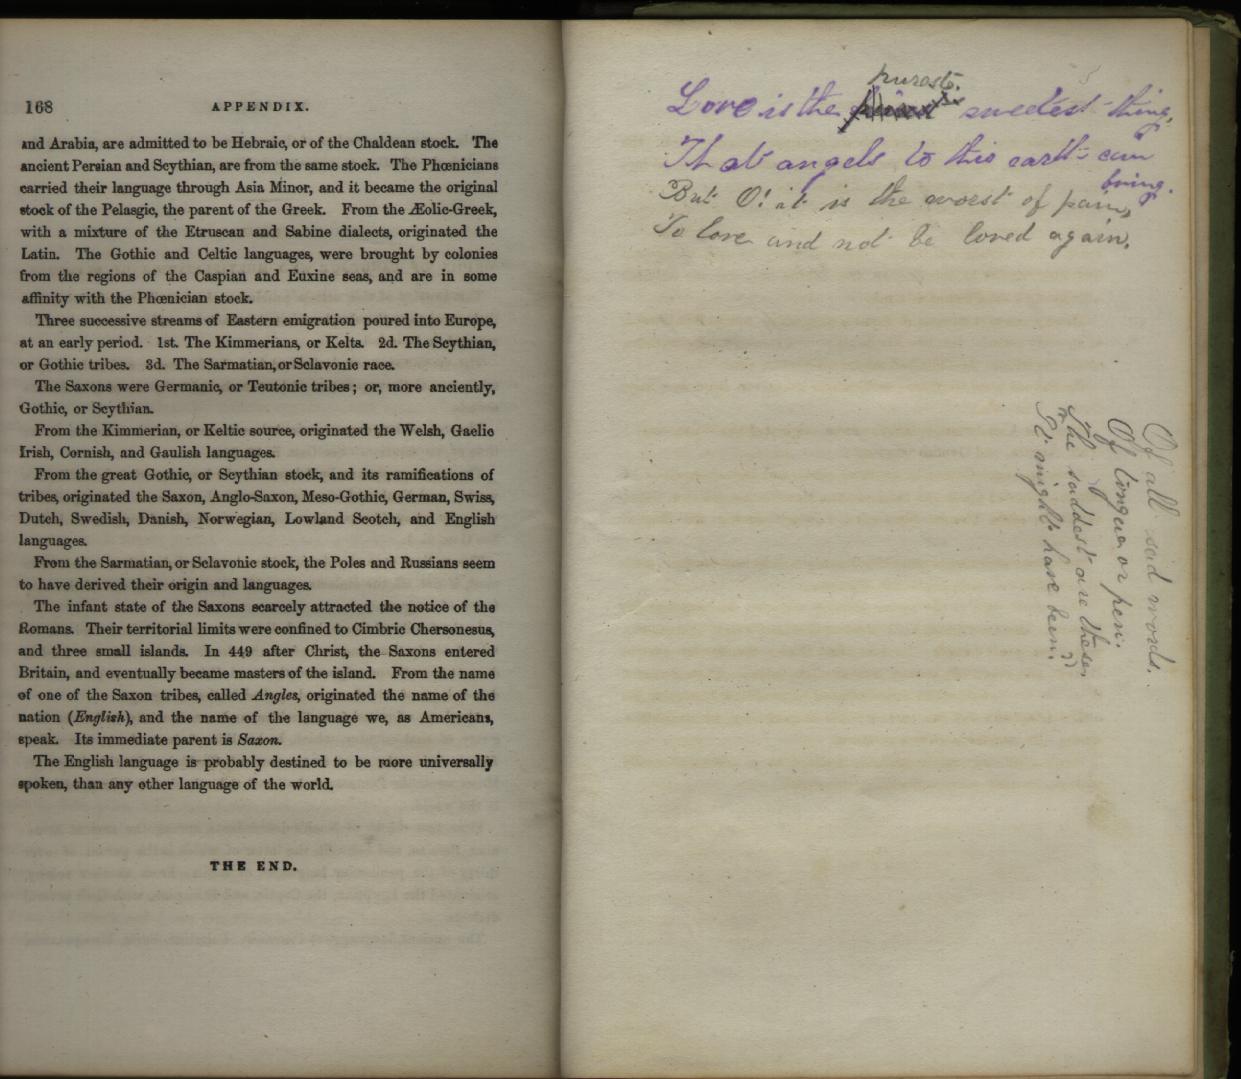 168
APPENDIX.
and Arabia, are admitted to be Hebraic, or of the Chaldean stock. The
ancient Persian and Scythian, are from the same stock. The Phœnicians
carried their language through Asia Minor, and it became the original
stock of the Pelasgic, the parent of the Greek. From the Æolic-Greek,
with a mixture of the Etruscan and Sabine dialects, originated the
Latin. The Gothic and Celtic languages, were brought by colonies
from the regions of the Caspian and Euxine seas, and are in some
affinity with the Phœnician stock.
Three successive streams of Eastern emigration poured into Europe,
at an early period. 1st. The Kimmerians, or Kelts. 2d. The Scythian,
or Gothic tribes. 3d. The Sarmatian, or Sclavonic race.
The Saxons were Germanic, or Teutonic tribes; or, more anciently,
Gothic, or Scythian.
From the Kimmerian, or Keltic source, originated the Welsh, Gaelic
Irish, Cornish, and Gaulish languages.
From the great Gothic, or Scythian stock, and its ramifications of
tribes, originated the Saxon, Anglo-Saxon, Meso-Gothic, German, Swiss,
Dutch, Swedish, Danish, Norwegian, Lowland Scotch, and English
languages.
From the Sarmatian, or Sclavonic stock, the Poles and Russians seem
to have derived their origin and languages.
The infant state of the Saxons scarcely attracted the notice of the
Romans. Their territorial limits were confined to Cimbric Chersonesus,
and three small islands. In 449 after Christ, the Saxons entered
Britain, and eventually became masters of the island. From the name
of one of the Saxon tribes, called Angles, originated the name of the
nation (English), and the name of the language we, as Americans,
speak. Its immediate parent is Saxon.
The English language is probably destined to be more universally
spoken, than any other language of the world.
THE END.
purest
Love is the sweetest thing,
That angels to this earth can
bring.
But O! it is the worst of pain,
To love and not be loved again.
Of all sad words.
Of tongue or pen.
The saddest are these
It might have been."